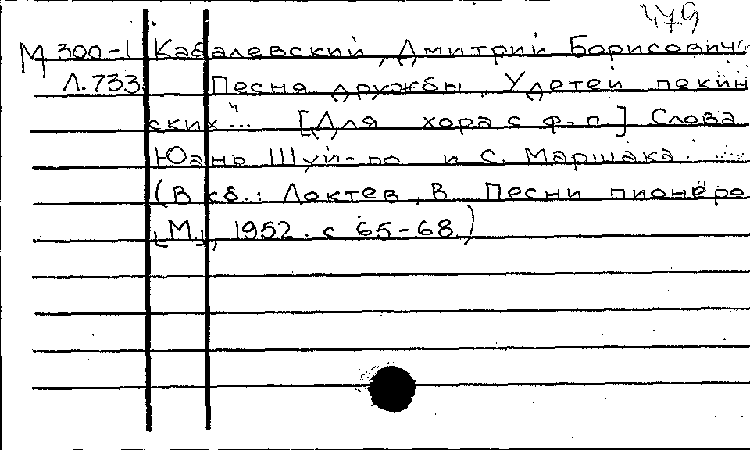 479
М 300-1 Кабалевский, Дмитрий Борисович
Л.733 Песня дружбы „У детей пекин
ских"... [Для хора с ф-п.] Слова
Юань Шуй-по и С. Маршака.
(В кб.: Локтев, В. Песни пионеро
[М.], 1952. с 65-68.)